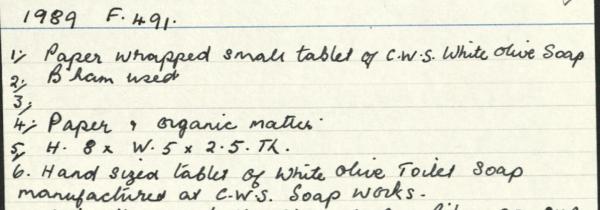 1989 F. 491.
1; Paper wrapped small tablet of C.W.S. White Olive Soap
2; B'ham used
3;
4; Paper & organic matter.
5; H. 8 x W. 5 x 2.5. Th.
6. Hand sized tablet of White Olive Toilet Soap
manufactured at C.W.S. Soap Works.